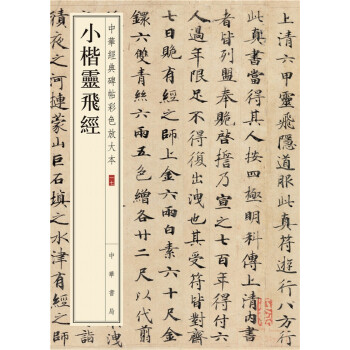 上清六甲靈飛隱道服此真符遊行八方行
此真書當得其人按四極明科傳上清內書
者皆列盟奉脆啓誓乃宣之七百年得付六
人過年限足不得復出洩也其受符皆對齋
七日脆有經之師上金六兩白素六十尺金
鐶六雙青絲六兩五色繒各廿二尺以代翦
中華經典碑帖彩色放大本
小楷靈飛經
中華書局
積夜之河連蒙山巨石填之水津有經之師